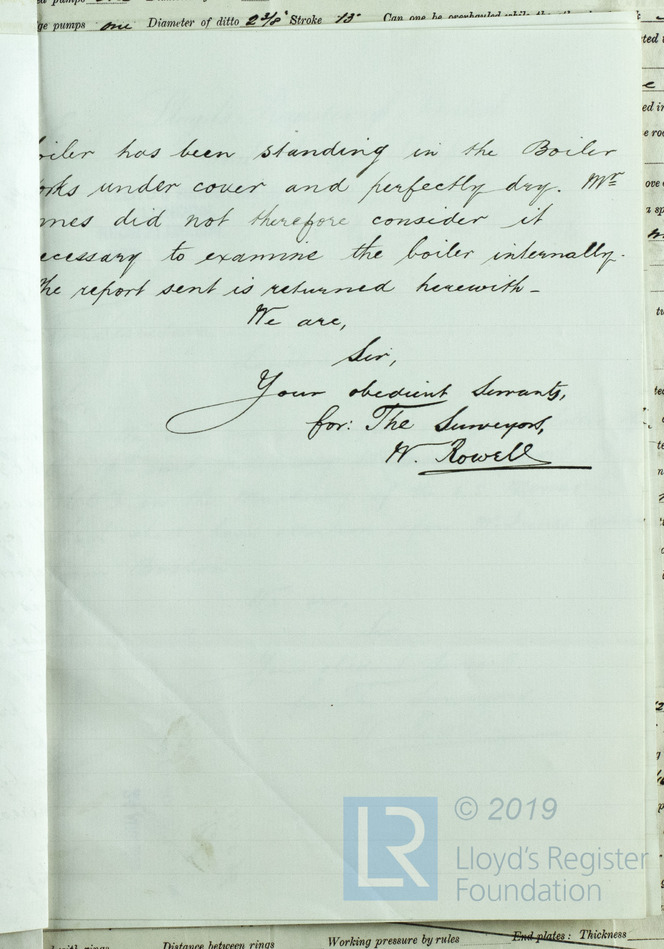 ge pumps one Diameter of ditto 2 3/8" Stroke 13"
oiler has been standing in the Boiler
orks under cover and perfectly dry. Mr
mes did not therefore consider it
ecessary to examine the boiler internally.
The report sent is returned herewith—
We are,
Sir,
Your obedient Servants,
for: The Surveyors,
W. Rowell
LR © 2019
Lloyd's Register
Foundation
with rings Distance between rings Working pressure by rules End plates: Thickness